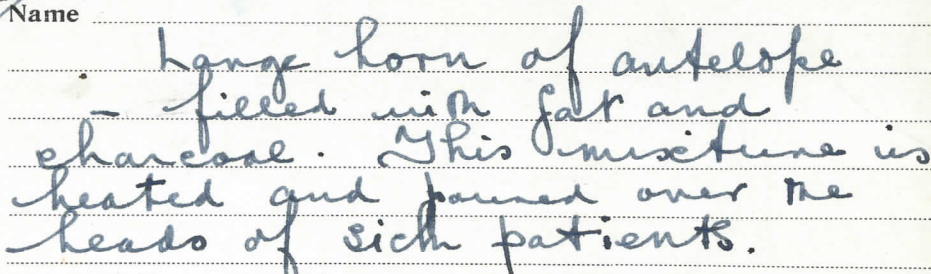 Name
Large horn of antelope
- filled with fat and
charcoal. This mixture is
heated and poured over the
heads of sick patients.